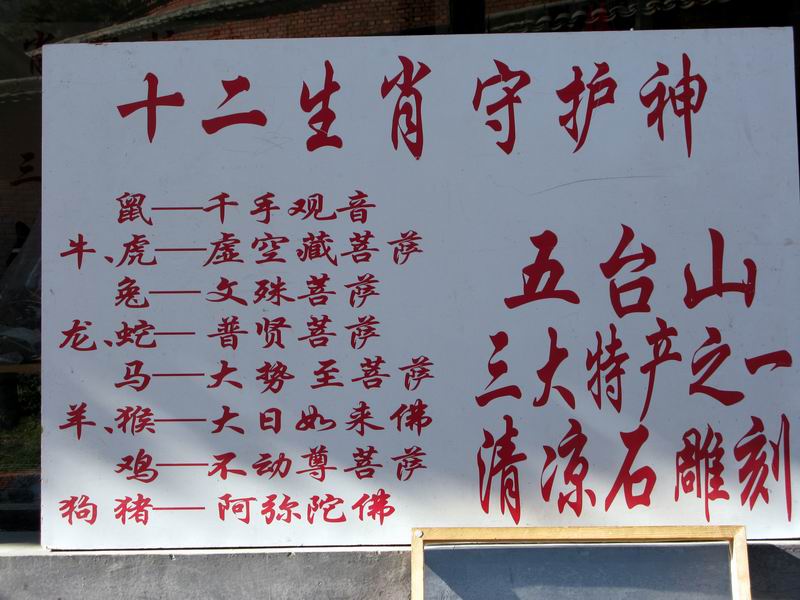 十二生肖守护神
鼠——千手观音
牛、虎——虚空藏菩萨
兔——文殊菩萨
龙、蛇——普贤菩萨
马——大势至菩萨
羊、猴——大日如来佛
鸡——不动尊菩萨
狗猪——阿弥陀佛
五台山
三大特产之一
清凉石雕刻